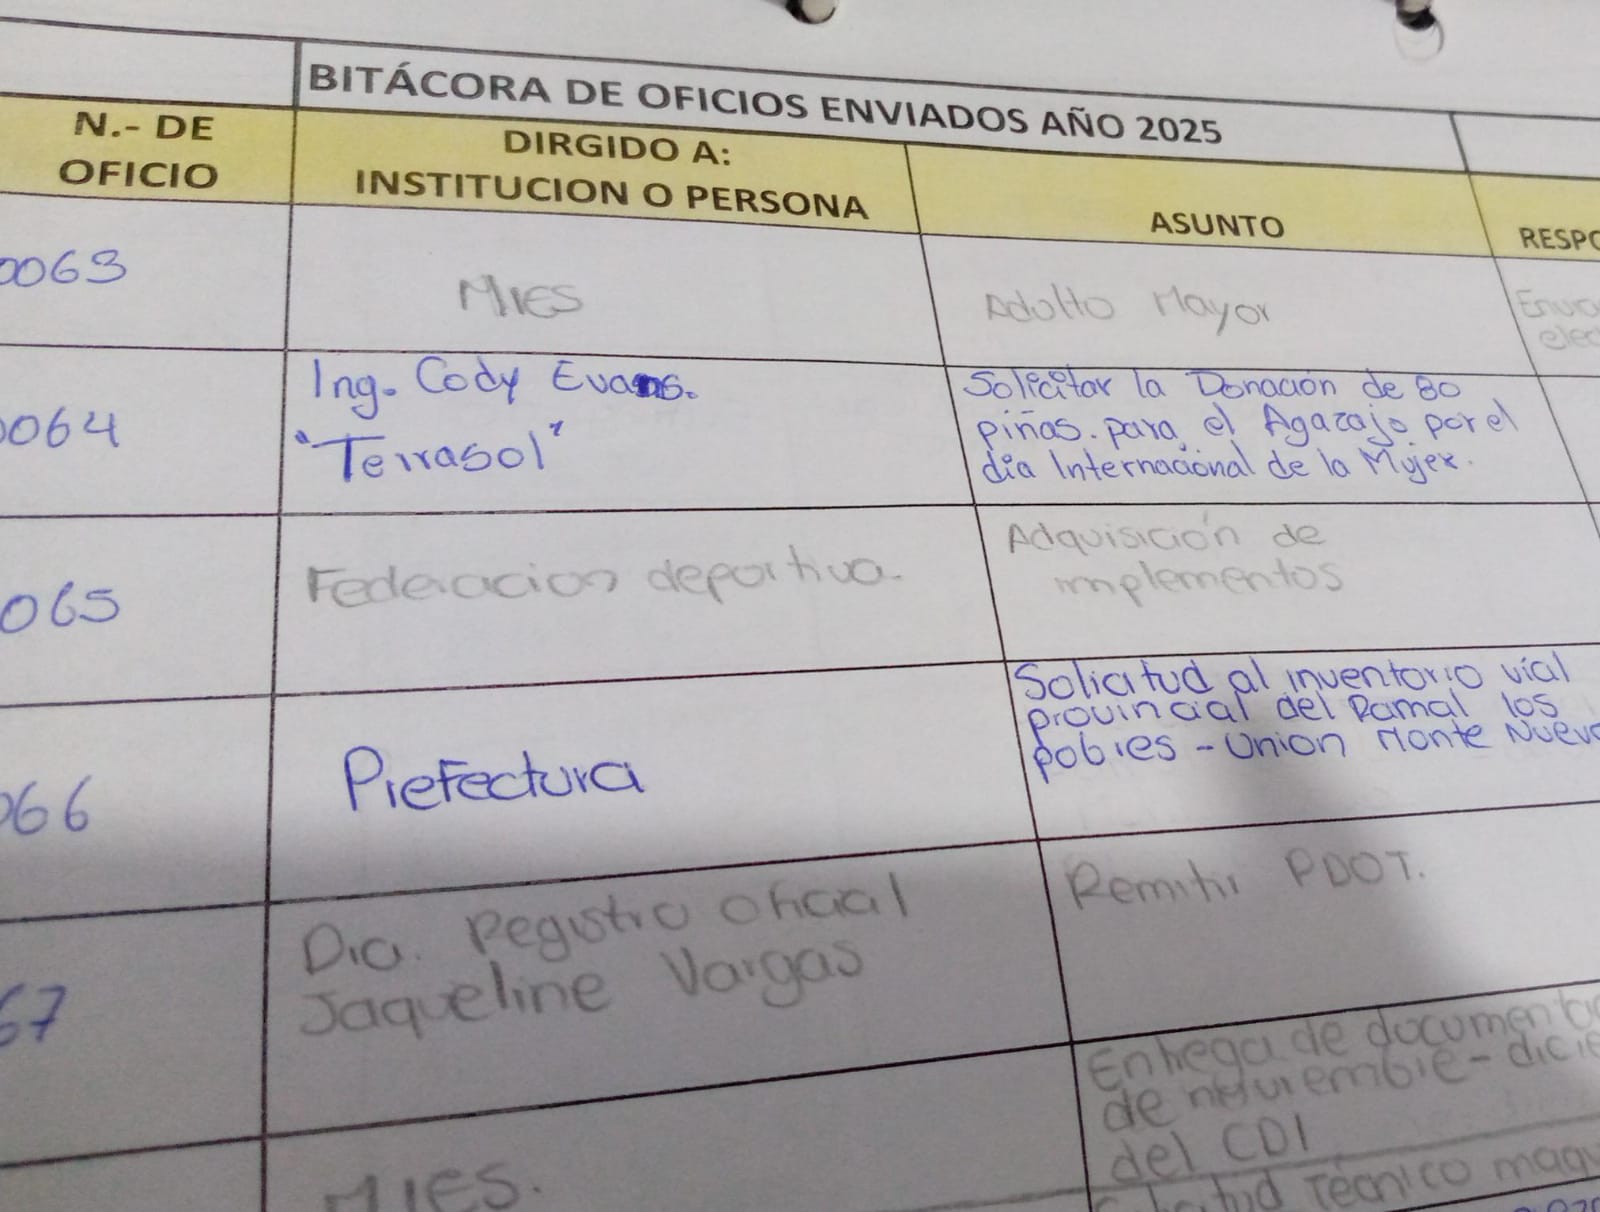 BITÁCORA DE OFICIOS ENVIADOS AÑO 2025
N.- DE
OFICIO
DIRGIDO A:
INSTITUCION O PERSONA
ASUNTO
RESPO
0063
MIES
Adulto Mayor
Envio
elec
0064
Ing. Cody Evans.
"Terrasol"
Solicitar la Donación de 80
piñas. para el Agazajo por el
día Internacional de la Mujer.
065
Federacion deportiva.
Adquisición de
implementos
066
Prefectura
Solicitud al inventorio vial
provincial del Ramal los
pobres - Union Monte Nuevo
67
Dra. Registro Oficial
Jaqueline Vargas
Remitir PDOT.
MIES.
Entrega de documenta
de noviembre - dicie
del CDI
Técnico maqu